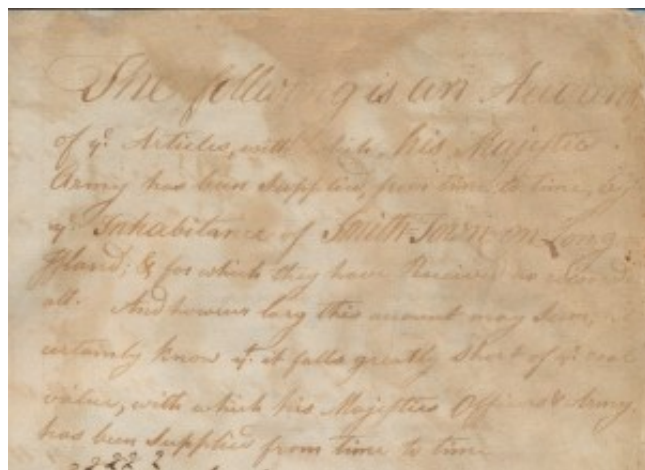 The following is an Account
of ye. Articles, with which, his Majestie
Army has been Supplied, from time to time, by
ye. Inhabitance of Smith-Town on Long
Island; & for which they have Received no
all. And however larg this amount may Seem,
certainly know yt. it falls greatly Short of ye. real
value, with which his Majesties Officers & Army,
has been Supplied from time to time